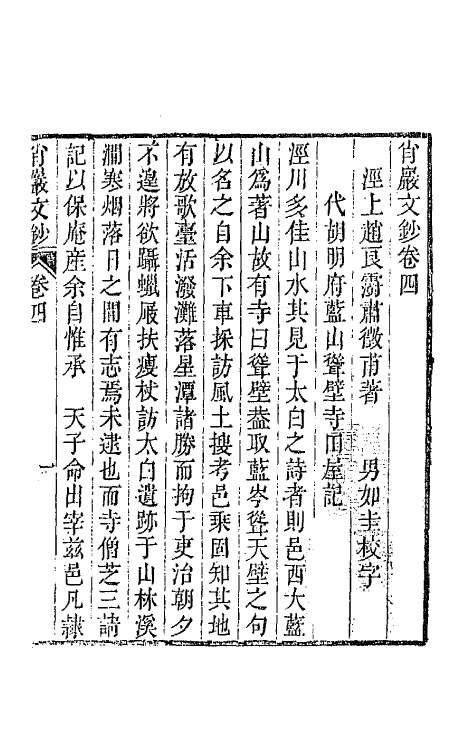 肖巖文鈔卷四
涇上趙良澍肅徵甫著　男如圭校字
代胡明府藍山聳壁寺田屋記
涇川多佳山水其見于太白之詩者則邑西大藍
山爲著山故有寺曰聳壁葢取藍岑聳天壁之句
以名之自余下車採訪風土搜考邑乘固知其地
有放歌臺活潑灘落星潭諸勝而拘于吏治朝夕
不遑將欲躡蠟屐扶瘦杖訪太白遺跡于山林溪
澗寒烟落日之間有志焉未逮也而寺僧芝三請
記以保庵産余自惟承　天子命出宰兹邑凡隷
肖巖文鈔　卷四　一